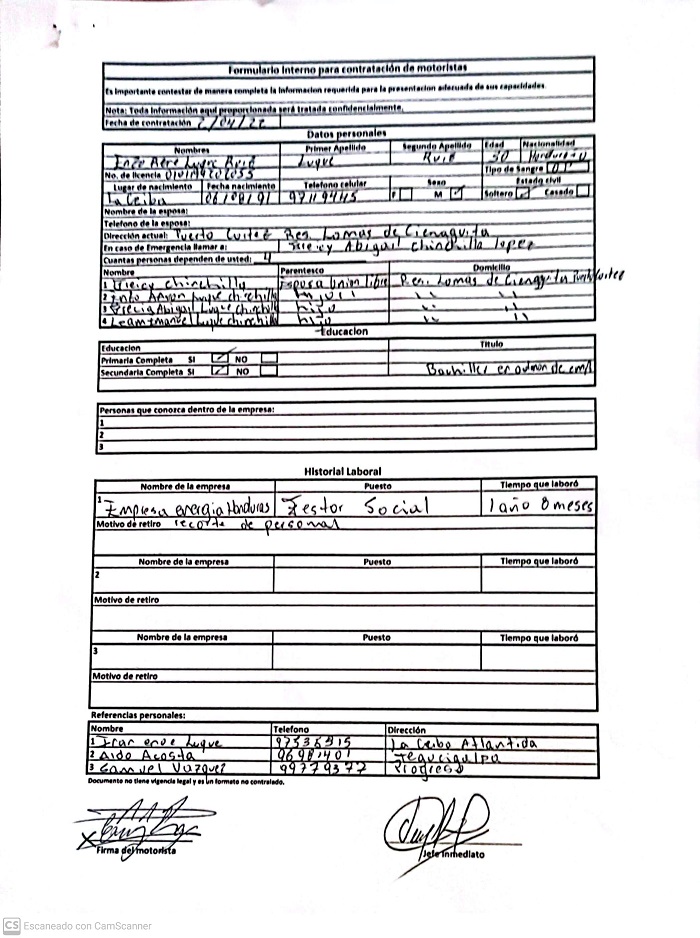 Formulario Interno para contratación de motoristas
Es importante contestar de manera completa la informacion requerida para la presentacion adecuada de sus capacidades.
Nota: Toda información aquí proporcionada será tratada confidencialmente.
Fecha de contratación 2/04/22
Datos personales
Nombres Primer Apellido Segundo Apellido Edad Nacionalidad
Luque Luque 30
No. de licencia Tipo de Sangre
Lugar de nacimiento Fecha nacimiento Telefono celular Sexo Estado civil
La Ceiba 06/08/91 97119445 F M Soltero Casado
Nombre de la esposa:
Telefono de la esposa:
Dirección actual: Puerto Cortez Res. Lomas de Cienaguita
En caso de Emergencia llamar a: Abigail chinchilla lopez
Cuantas personas dependen de usted: 4
Nombre Parentesco Domicilio
1 chinchilla esposa Union libre Res. Lomas de Cienaguita Puerto Cortez
2 Luque chinchilla " "
3 Abigail Luque chinchilla hijo " "
4 Luque chinchilla hijo " "
Educacion
Educacion Titulo
Primaria Completa SI NO
Secundaria Completa SI NO Bachiller en admon de emp
Personas que conozca dentro de la empresa:
1
2
3
Historial Laboral
Nombre de la empresa Puesto Tiempo que laboró
1 Empresa energia Honduras Gestor Social 1 año 8 meses
Motivo de retiro recorte de personal
Nombre de la empresa Puesto Tiempo que laboró
2
Motivo de retiro
Nombre de la empresa Puesto Tiempo que laboró
3
Motivo de retiro
Referencias personales:
Nombre Telefono Dirección
1 Luque La Ceiba Atlantida
2 Aldo Acosta Tegucigalpa
3 Samuel Vazquez 99779377 Progreso
Documento no tiene vigencia legal y es un formato no controlado.
X
Firma del motorista Jefe inmediato
CS Escaneado con CamScanner